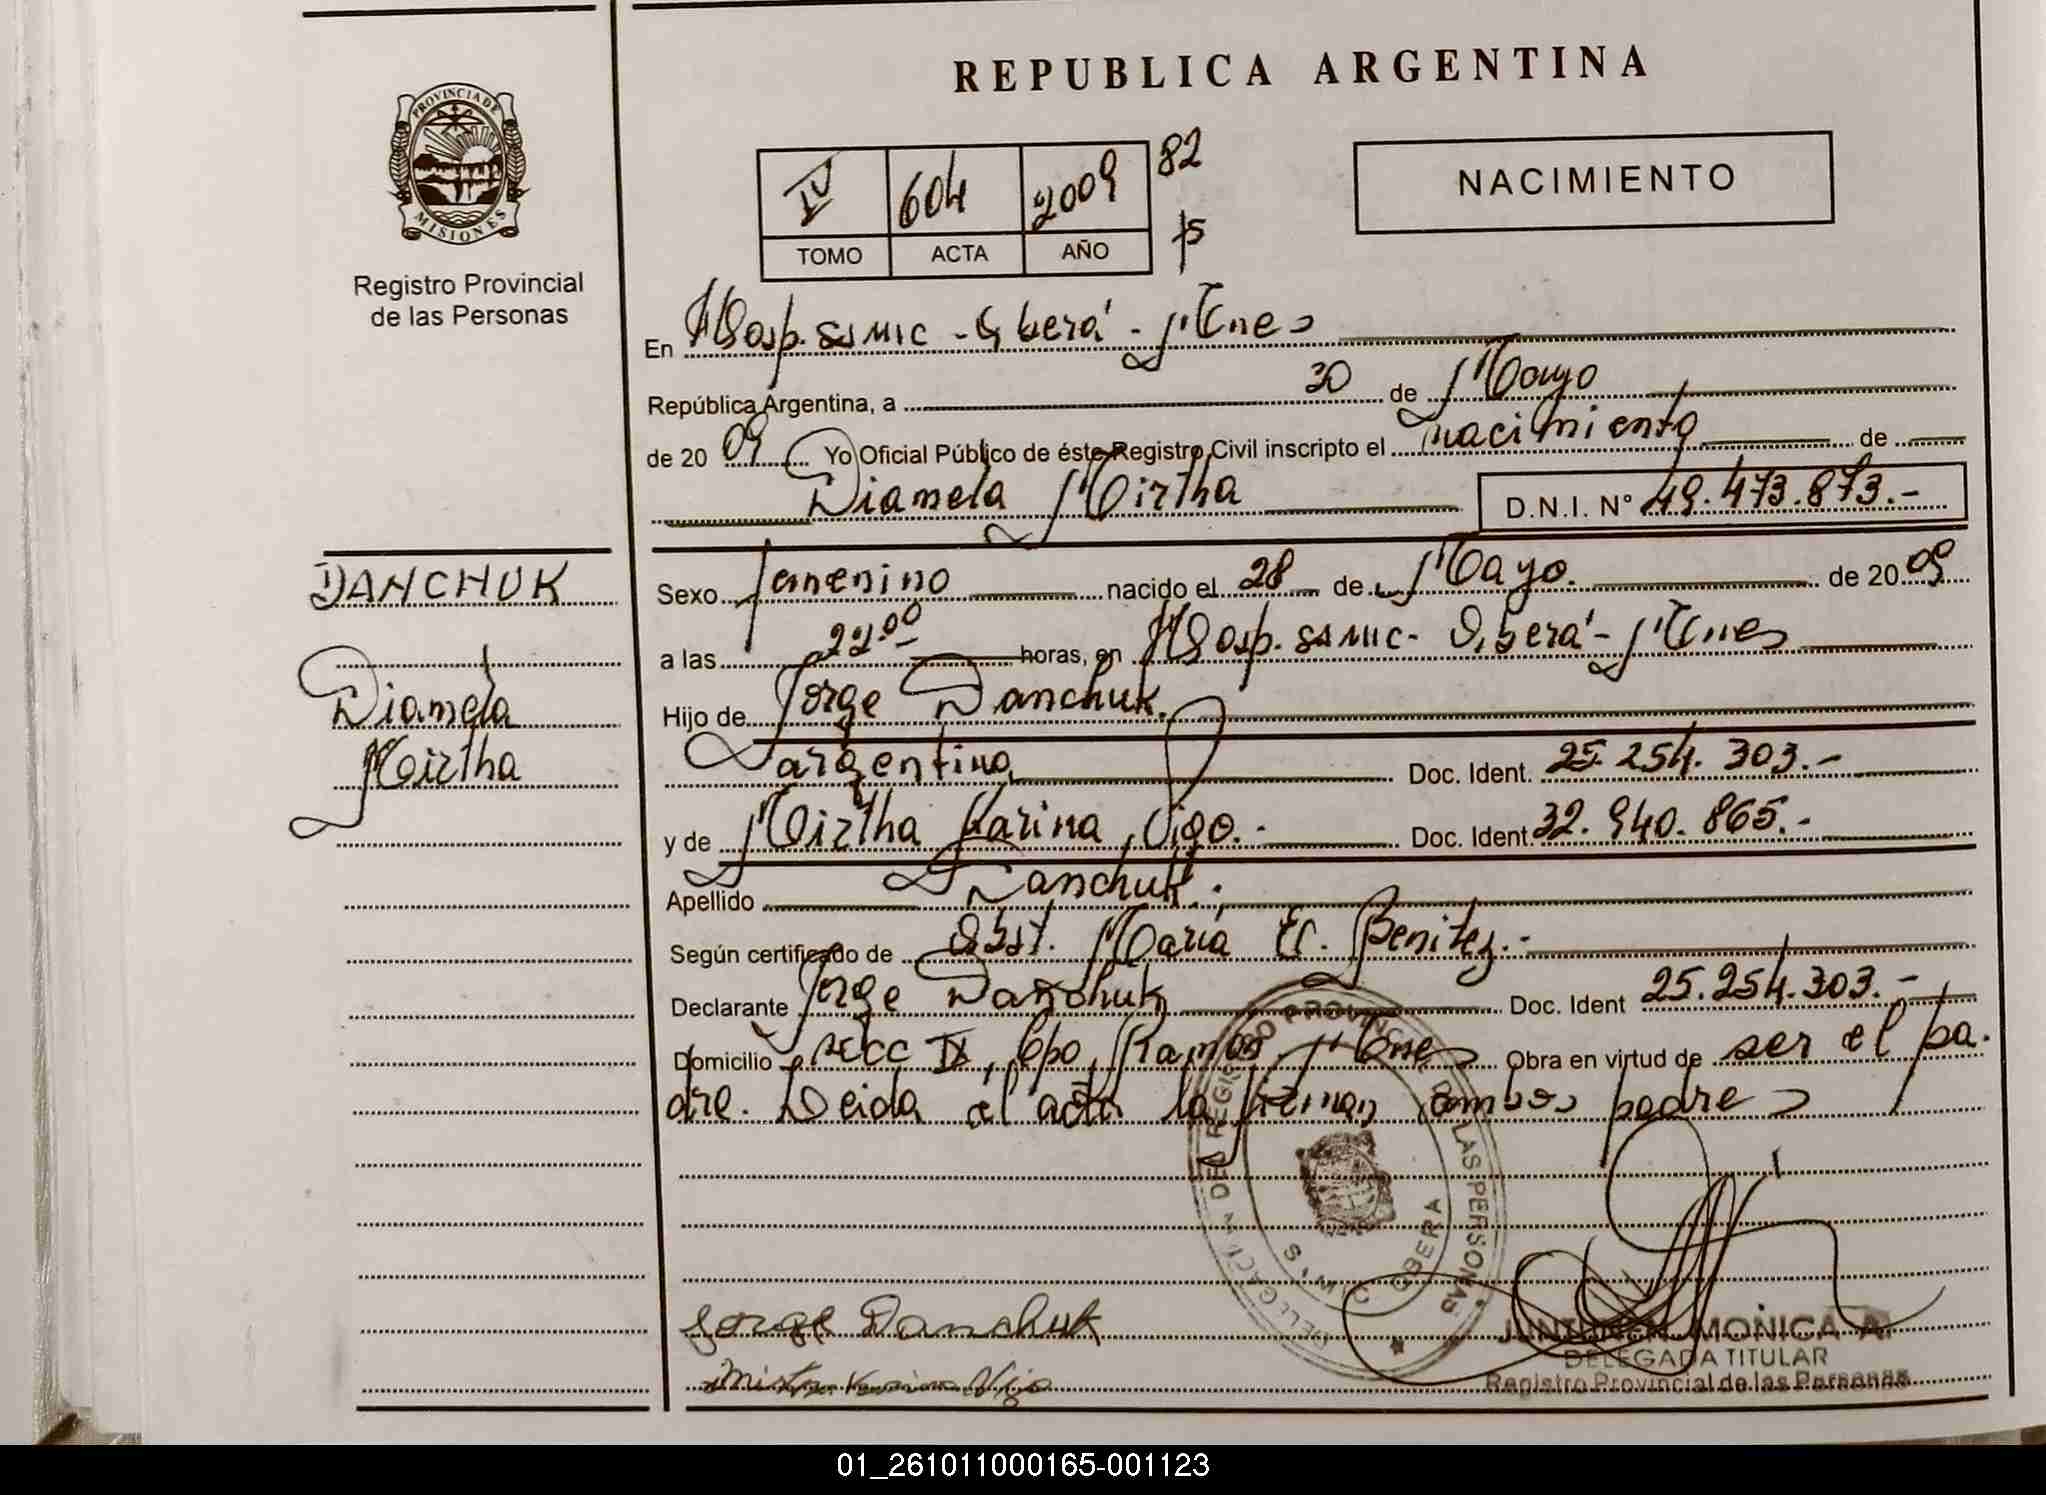 REPUBLICA ARGENTINA
PROVINCIA DE
MISIONES
Registro Provincial
de las Personas
IV 604 2009 82
TOMO ACTA AÑO
NACIMIENTO
En Hosp. SAMIC - Oberá - Mnes
República Argentina, a 30 de Mayo
de 20 09 Yo Oficial Público de éste Registro Civil inscripto el nacimiento de
Diamela Mirtha D.N.I. N° 49.473.873.-
DANCHUK
Diamela
Mirtha
Sexo femenino nacido el 28 de Mayo. de 20 09
a las 22:00 horas, en Hosp. SAMIC - Oberá - Mnes
Hijo de Jorge Danchuk.
argentino Doc. Ident. 25.254.303.-
y de Mirtha Karina Vigo.- Doc. Ident. 32.940.865.-
Apellido Danchuk.
Según certificado de Obst. María E. Benitez.-
Declarante Jorge Danchuk Doc. Ident 25.254.303.-
Domicilio secc IX, Cpo, Ramón. Mnes Obra en virtud de ser el pa-
dre. Leida el acta la firman ambos padres
DELEGACION DEL REGISTRO PROVINCIAL DE LAS PERSONAS
S.A.M.I.C. OBERA
Jorge Danchuk
Mirtha Karina Vigo
MONICA A.
DELEGADA TITULAR
Registro Provincial de las Personas
01_261011000165-001123